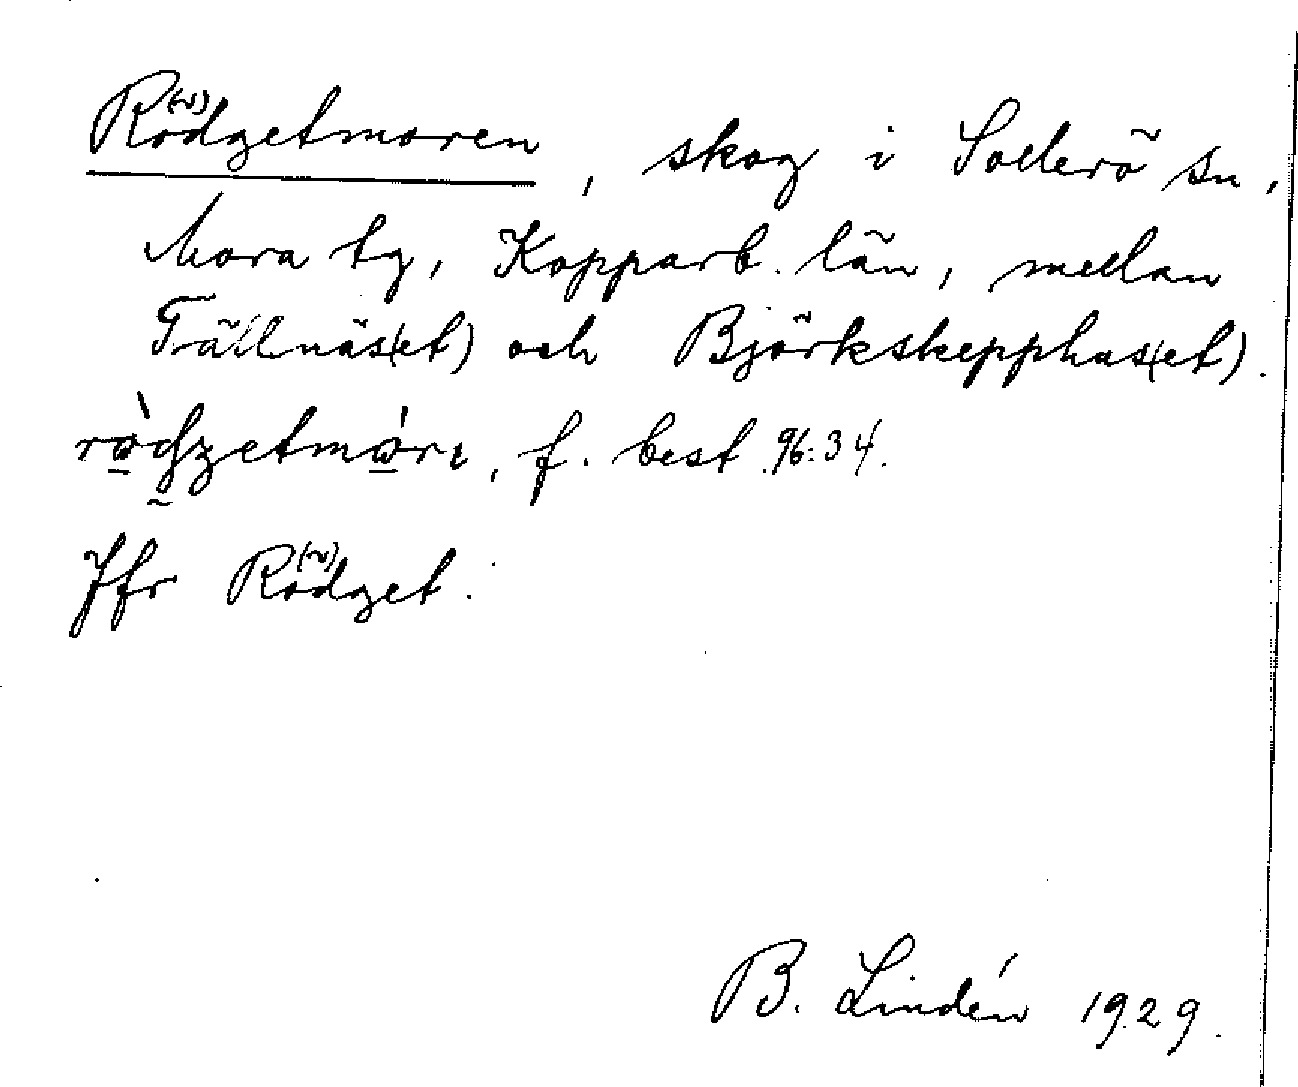 Rödgetmoren, skog i Sollerö sn,
Mora tg, Kopparb. län, mellan
Trällnäs(et) och Björkskepphus(et).
f. best 96:34.
Jfr Rödget.
B. Lindén 1929.